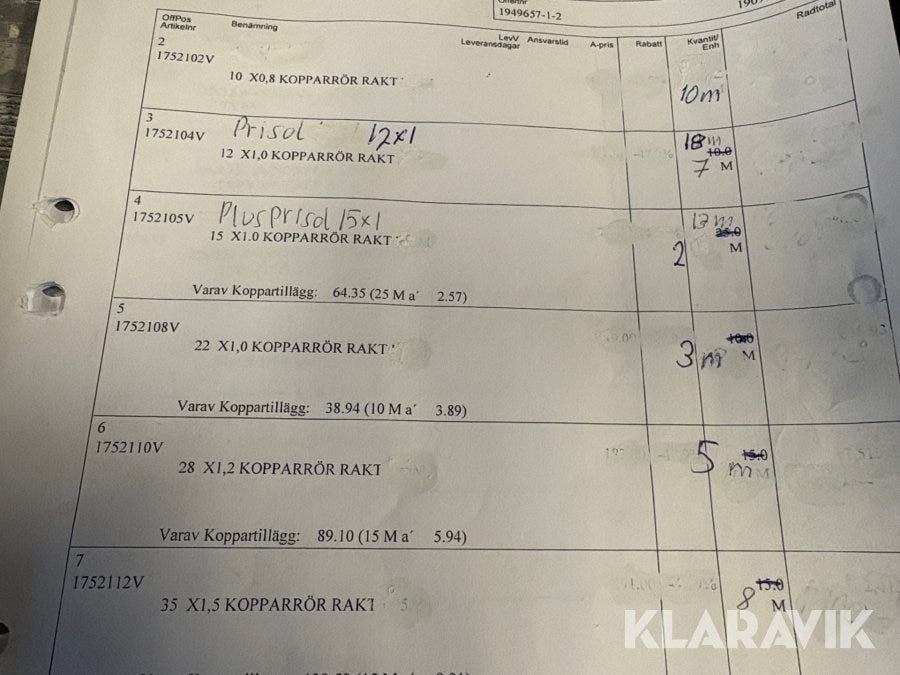 1949657-1-2
OffPos
Artikelnr
Benämning
LevV
Leveransdagar
Ansvarstid
A-pris
Rabatt
Kvantit/
Enh
Radtotal
2
1752102V
10 X0,8 KOPPARRÖR RAKT
10m
3
1752104V
Prisol 12x1
12 X1,0 KOPPARRÖR RAKT
18m
10.0
7 M
4
1752105V
Plus Prisol 15x1
15 X1.0 KOPPARRÖR RAKT
25.0
2 M
Varav Koppartillägg: 64.35 (25 M a´ 2.57)
5
1752108V
22 X1,0 KOPPARRÖR RAKT
10.0
3 m M
Varav Koppartillägg: 38.94 (10 M a´ 3.89)
6
1752110V
28 X1,2 KOPPARRÖR RAKT
15.0
5 m M
Varav Koppartillägg: 89.10 (15 M a´ 5.94)
7
1752112V
35 X1,5 KOPPARRÖR RAKT
15.0
8 M
KLARAVIK